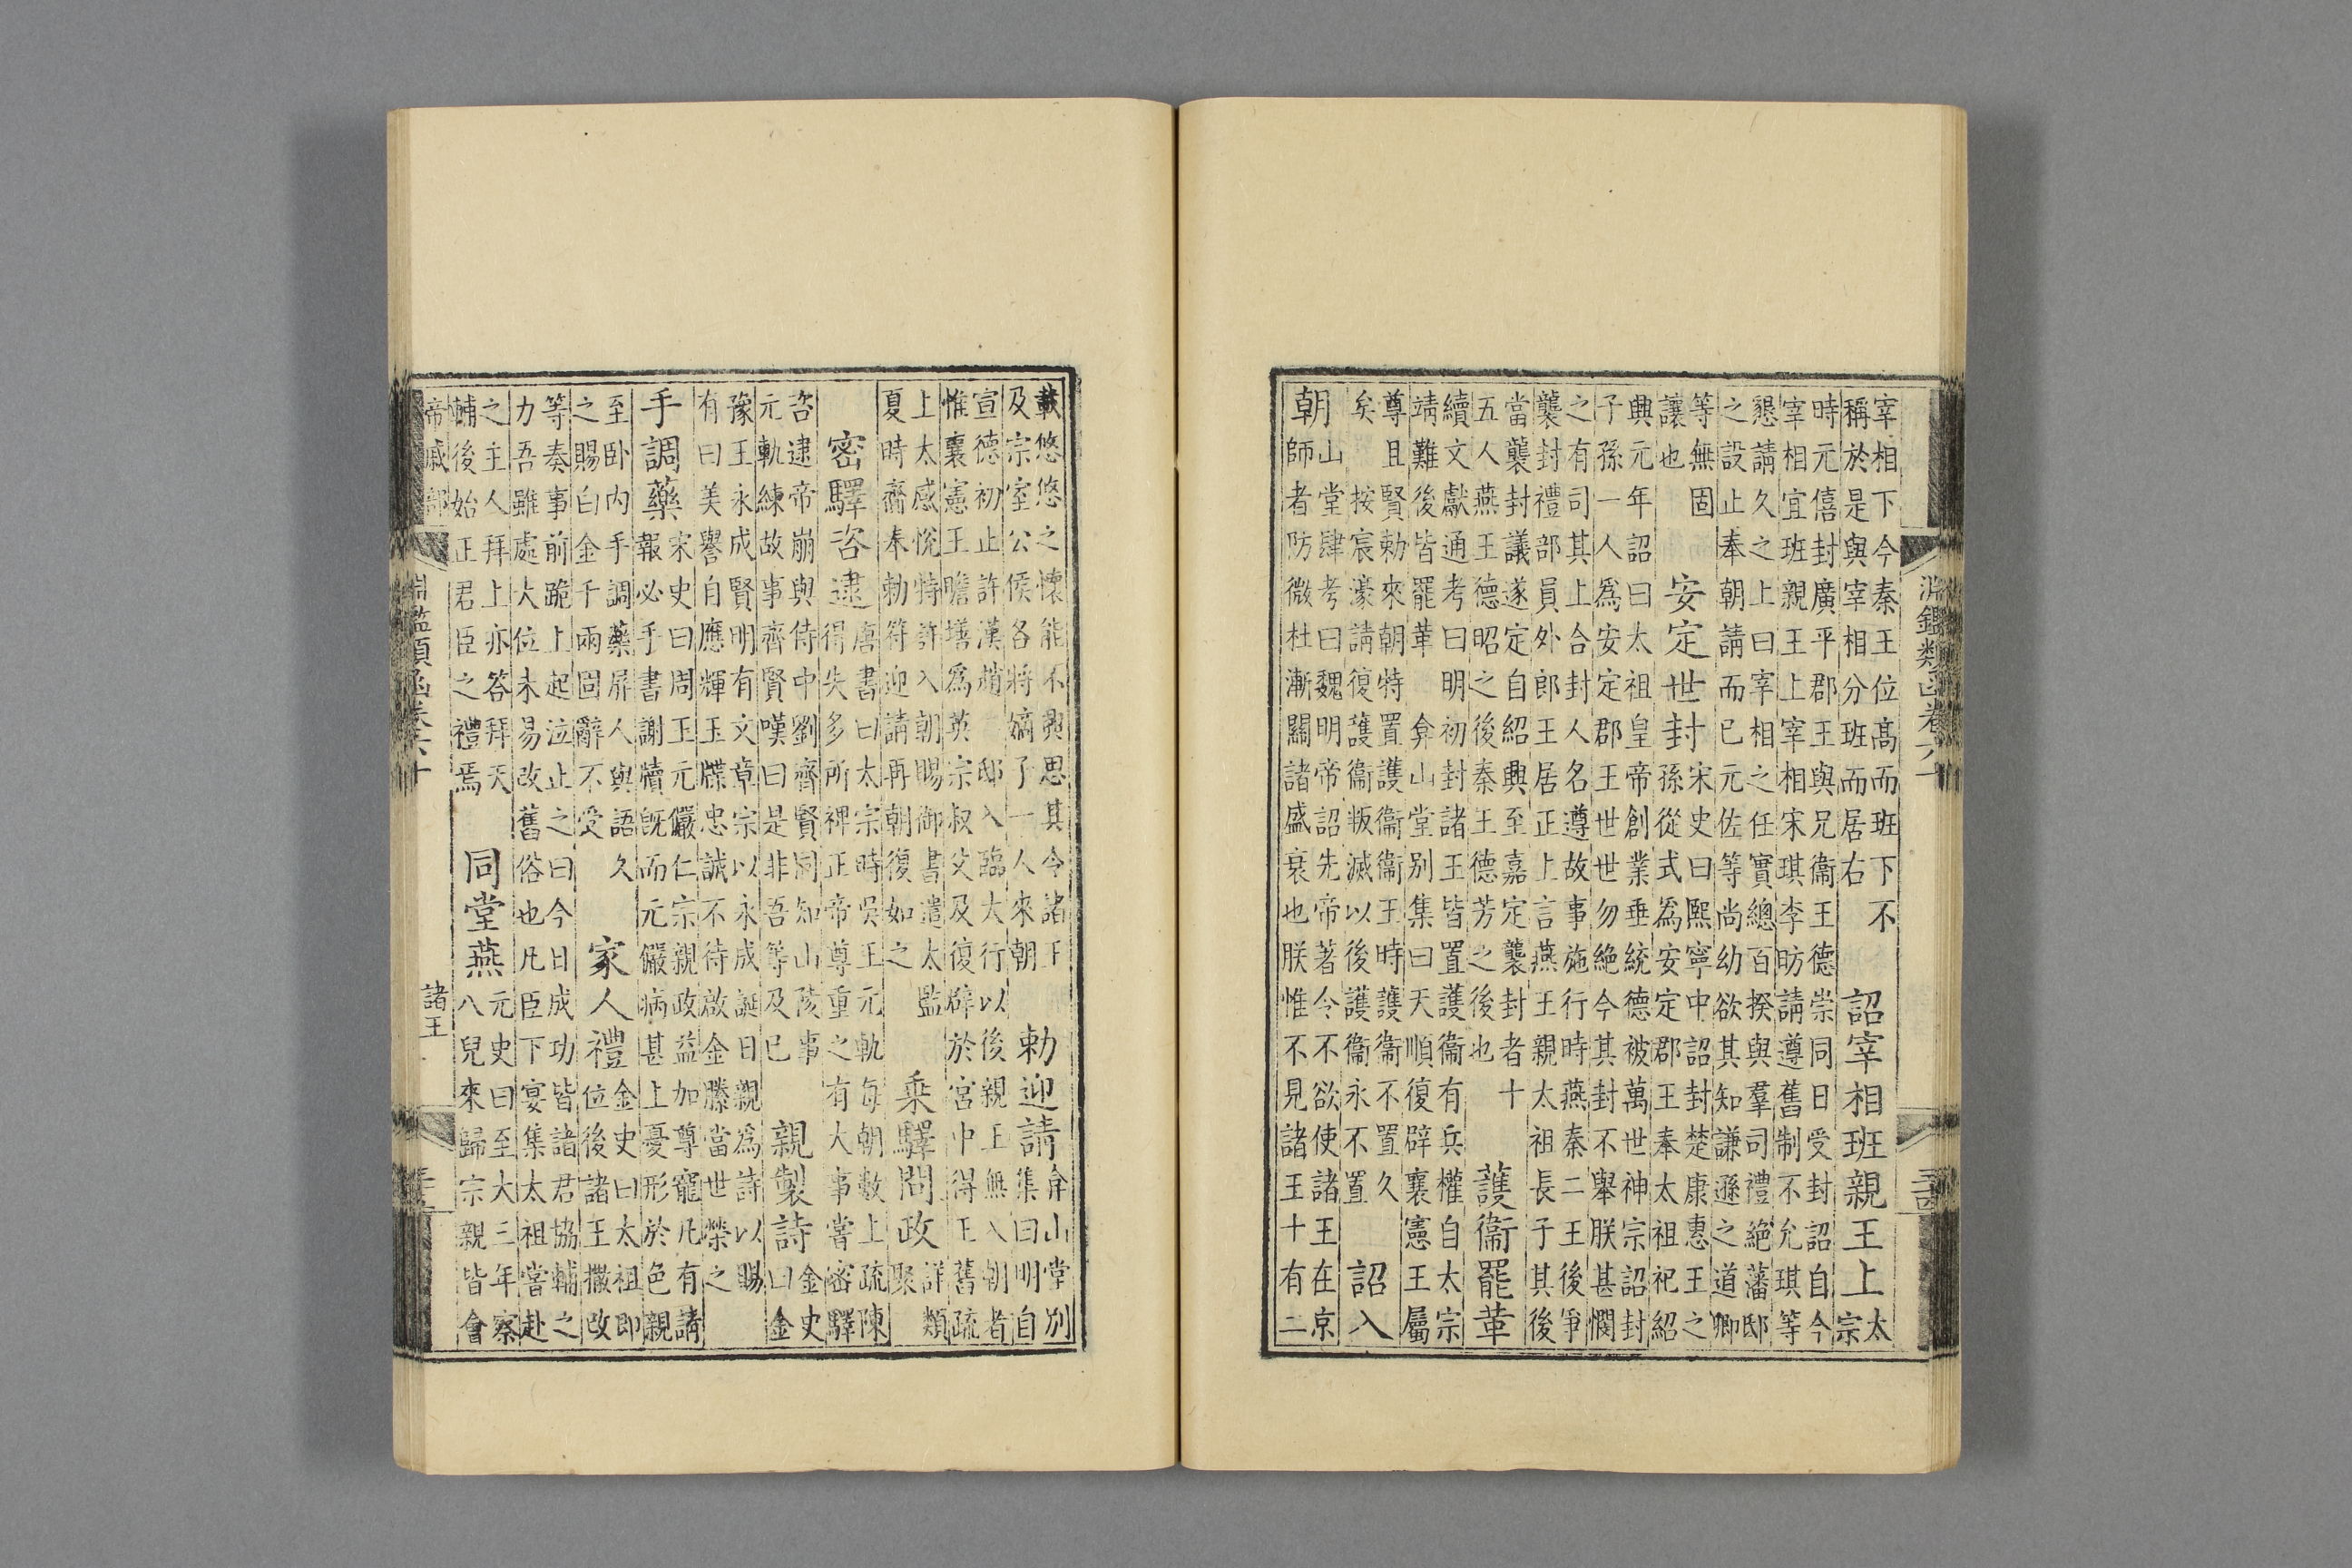 淵鑑類函卷六十
宰相下今秦王位髙而班下不
稱於是與宰相分班而居右
詔宰相班親王上
太
宗
時元僖封廣平郡王與兄衛王德崇同日受封詔自今
宰相宜班親王上宰相宋琪李昉請遵舊制不允琪等
懇請久之上曰宰相之任實總百揆與羣司禮絶藩邸
之設止奉朝請而已元佐等尚幼欲其知謙遜之道卿
等無固
讓也
安定世封
宋史曰熙寧中詔封楚康惠王之
孫從式爲安定郡王奉太祖祀紹
興元年詔曰太祖皇帝創業垂統德被萬世神宗詔封
子孫一人爲安定郡王世世勿絶今其封不舉朕甚憫
之有司其上合封人名遵故事施行時燕秦二王後爭
襲封禮部員外郎王居正上言燕王親太祖長子其後
當襲封議遂定自紹興至嘉定襲封者十
五人燕王德昭之後秦王德芳之後也
護衛罷革
續文獻通考曰明初封諸王皆置護衛有兵權自太宗
靖難後皆罷革 弇山堂别集曰天順復辟襄憲王屬
尊且賢勅來朝特置護衛衛王時護衛不置久
矣按宸濠請復護衛叛滅以後護衛永不置
詔入
朝
山堂肆考曰魏明帝詔先帝著令不欲使諸王在京
師者防微杜漸關諸盛衰也朕惟不見諸王十有二
載悠悠之懷能不興思其令諸王
及宗室公侯各將嫡子一人來朝
勅迎請
弇山堂别
集曰明自
宣德初止許漢趙二邸入臨大行以後親王無入朝者
惟襄憲王瞻墡爲英宗叔父及復辟於宮中得王舊疏
上太感悅特許入朝賜御書遣太監
夏時齎奉勅符迎請再朝復如之
乗驛問政
詳類
聚
密驛咨逮
唐書曰太宗時吳王元軌每朝數上疏陳
得失多所裨正帝尊重之有大事嘗密驛
咨逮帝崩與侍中劉齊賢同知山陵事
元軌練故事齊賢嘆曰是非吾等及已
親製詩
金史
曰金
豫王永成賢明有文章宗以永成誕日親爲詩以賜
有曰美譽自應輝玉牒忠誠不待啟金縢當世榮之
手調藥
宋史曰周王元儼仁宗親政益加尊寵凡有請
報必手書謝牘既而元儼病甚上憂形於色親
至卧内手調藥屏人與語久
之賜白金千兩固辭不受
家人禮
金史曰太祖即
位後諸王撒改
等奏事前跪上起泣止之曰今日成功皆諸君協輔之
力吾雖處大位未易改舊俗也凡臣下宴集太祖嘗赴
之主人拜上亦答拜天
輔後始正君臣之禮焉
同堂燕
元史曰至大三年察
八兒來歸宗親皆會
帝戚部
淵鑑類函卷六十
諸王